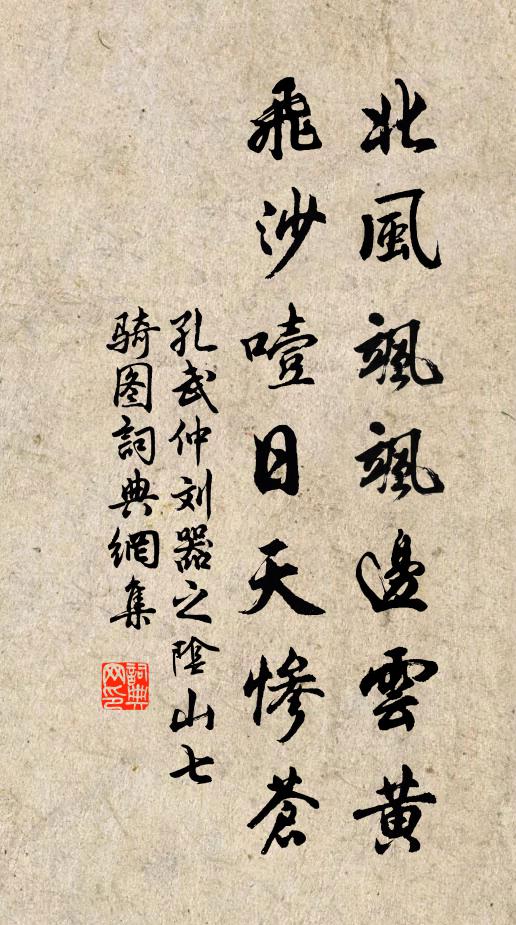 北風颯颯邊雲黃
飛沙噎日天慘蒼
孔武仲刘器之陰山七
骑图詞典網集
詞典
网印